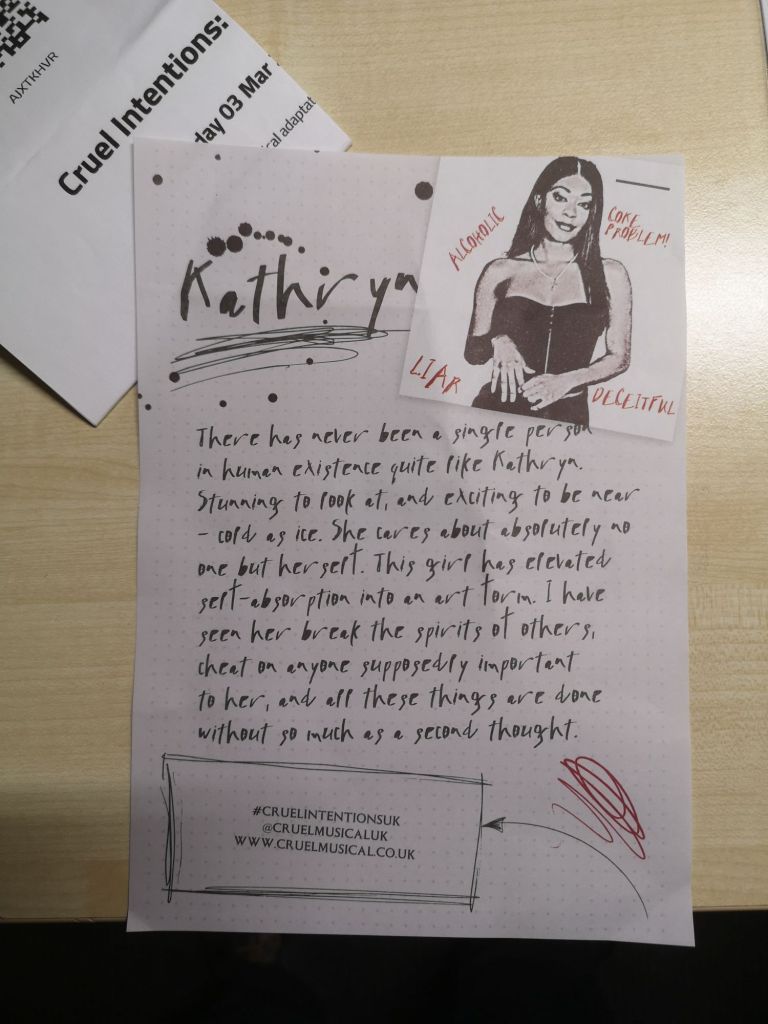 AJXTKHVR
Cruel Intentions:
day 03 Mar
ical adaptat
Kathryn
ALCOHOLIC
COKE
PROBLEM!
LIAR
DECEITFUL
There has never been a single person
in human existence quite like Kathryn.
Stunning to look at, and exciting to be near
- cold as ice. She cares about absolutely no
one but herself. This girl has elevated
self-absorption into an art form. I have
seen her break the spirits of others,
cheat on anyone supposedly important
to her, and all these things are done
without so much as a second thought.
#CRUELINTENTIONSUK
@CRUELMUSICALUK
WWW.CRUELMUSICAL.CO.UK